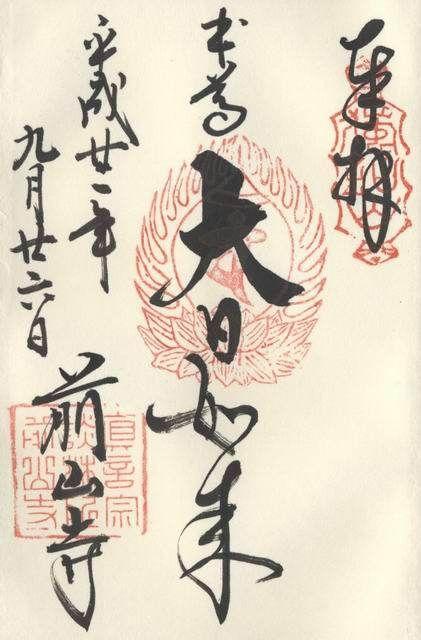 奉拝
本尊
大日如来
平成廿一年
九月廿六日
前山寺
真言宗
前山寺